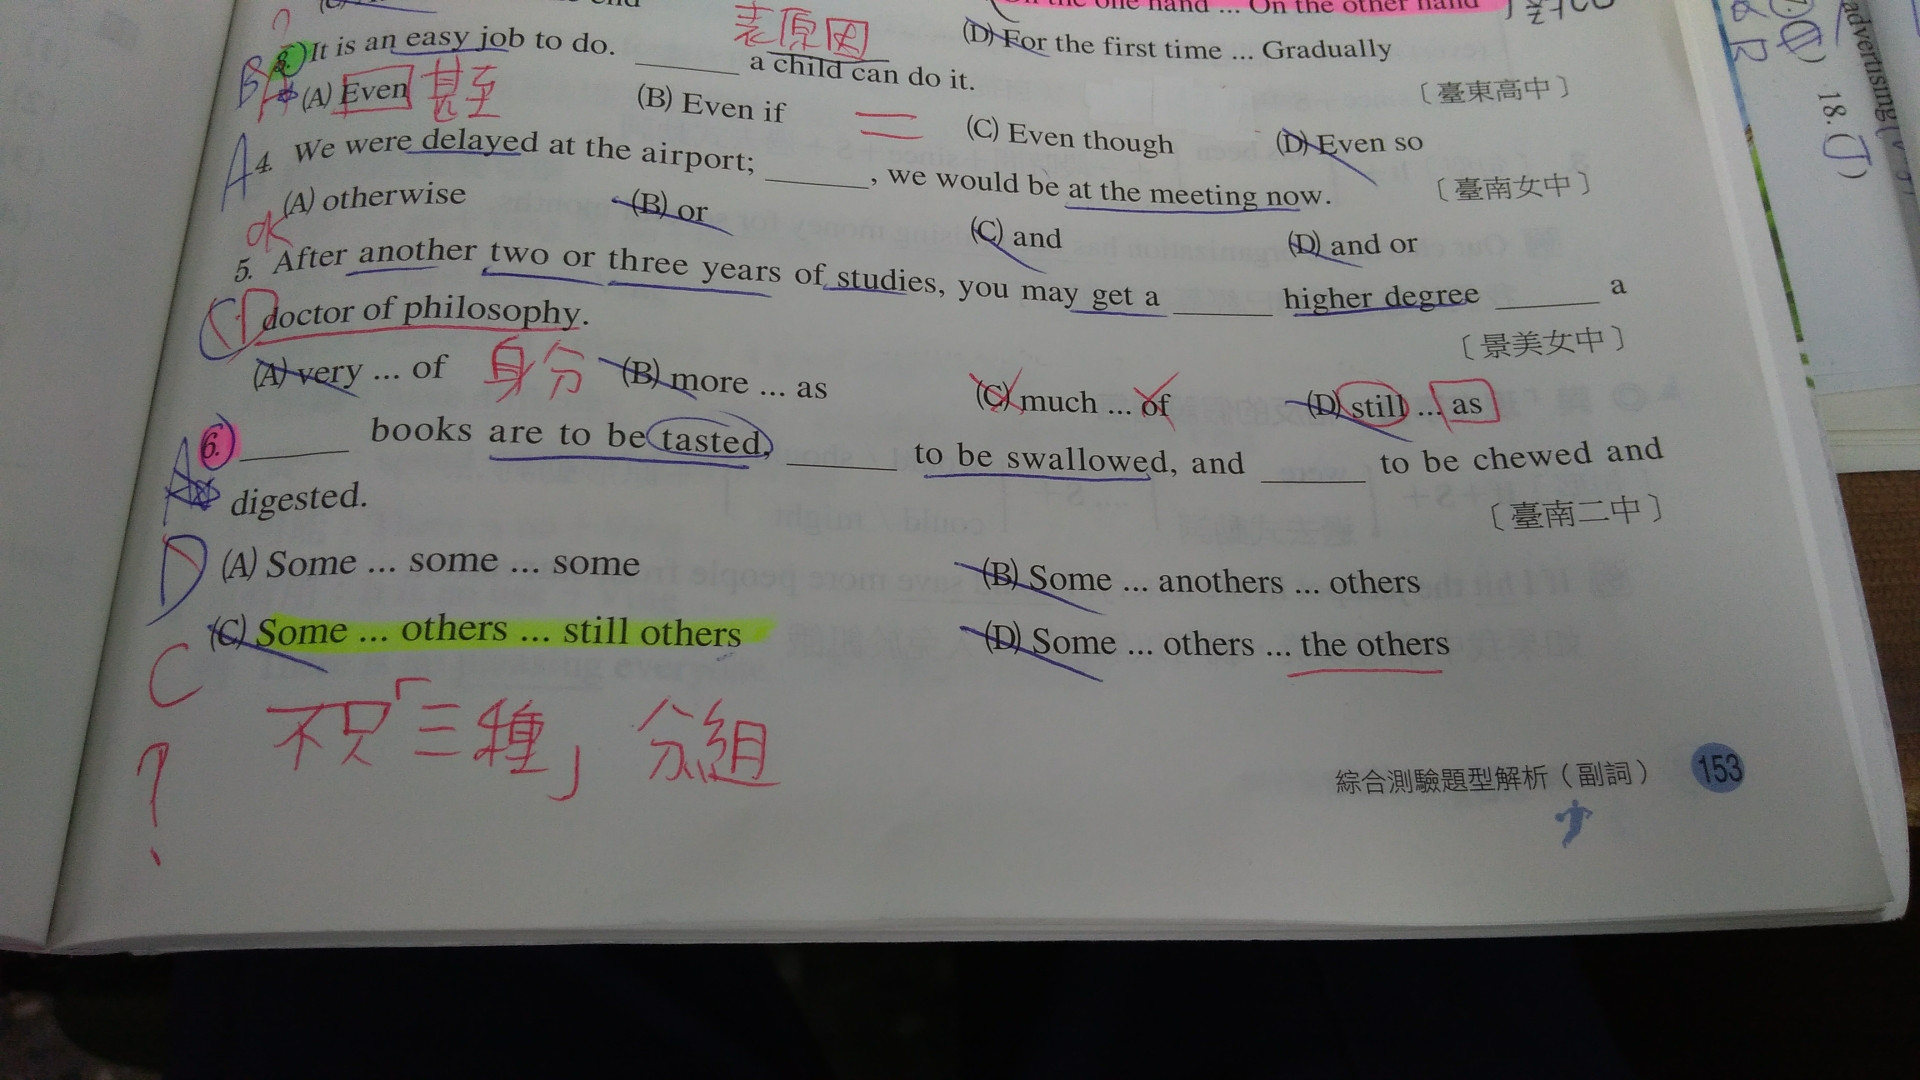 On the one hand ... On the other hand
(D) For the first time ... Gradually
〔臺東高中〕
表原因
3. It is an easy job to do. ______ a child can do it.
(A) Even 甚至 (B) Even if = (C) Even though (D) Even so
〔臺南女中〕
A 4. We were delayed at the airport; ______, we would be at the meeting now.
(A) otherwise (B) or (C) and (D) and or
ok
5. After another two or three years of studies, you may get a ______ higher degree ______ a
doctor of philosophy.
〔景美女中〕
(A) very ... of 身分 (B) more ... as (C) much ... of (D) still ... as
6. ______ books are to be tasted, ______ to be swallowed, and ______ to be chewed and
digested.
〔臺南二中〕
(A) Some ... some ... some (B) Some ... anothers ... others
(C) Some ... others ... still others (D) Some ... others ... the others
D
C
?
不只「三種」分組
綜合測驗題型解析(副詞) 153
advertising
18. (J)